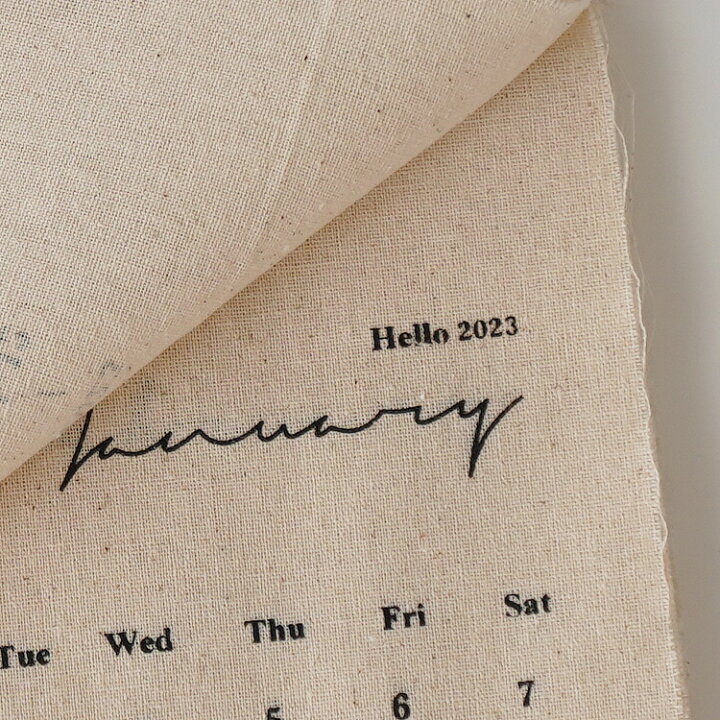 Hello 2023
January
Tue Wed Thu Fri Sat
5 6 7